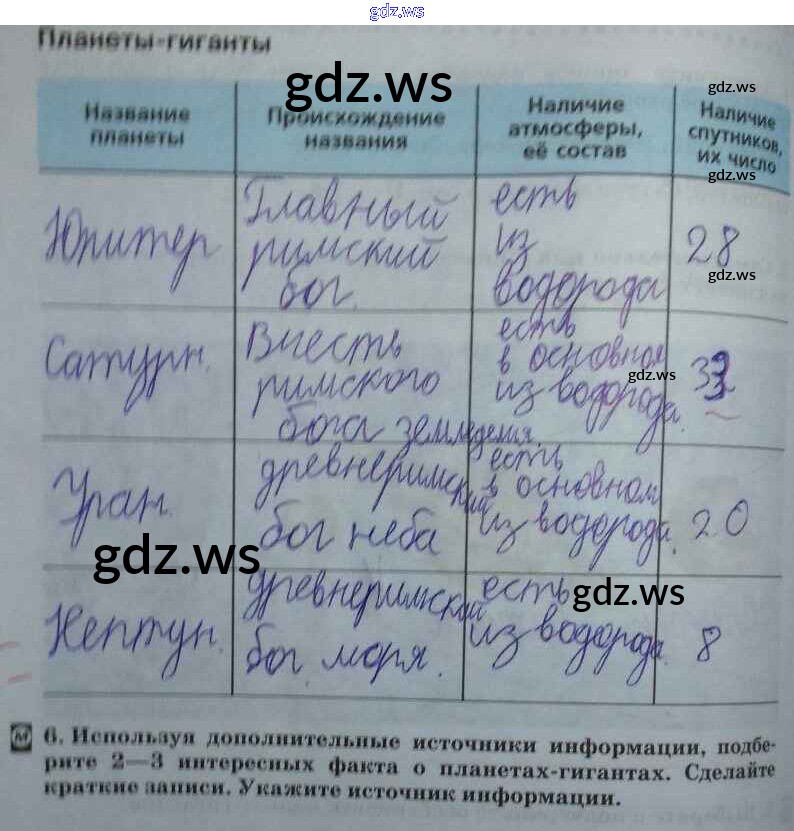 gdz.ws
Планеты-гиганты
gdz.ws
gdz.ws
Название планеты
Происхождение названия
Наличие атмосферы, её состав
Наличие спутников, их число
gdz.ws
Юпитер
Главный
римский
бог.
есть
из
водорода
28
gdz.ws
Сатурн.
В честь
римского
бога земледелия.
есть
в основном
из водорода.
gdz.ws
Уран.
древнеримский
бог неба
есть
в основном
из водорода.
20
gdz.ws
Нептун.
древнеримский
бог моря.
есть
из водорода.
8
gdz.ws
6. Используя дополнительные источники информации, подбе-
рите 2—3 интересных факта о планетах-гигантах. Сделайте
краткие записи. Укажите источник информации.